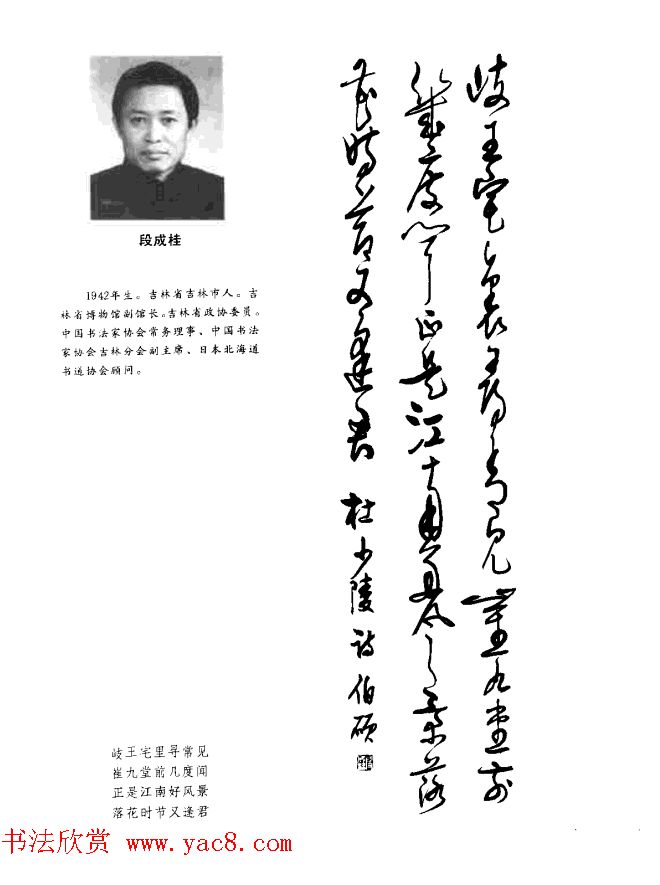 段成桂
1942年生。吉林省吉林市人。吉
林省博物馆副馆长。吉林省政协委员。
中国书法家协会常务理事、中国书法
家协会吉林分会副主席、日本北海道
书道协会顾问。
岐王宅里寻常见崔九堂前
几度闻正是江南好风景落
花时节又逢君 杜少陵诗 伯硕
岐王宅里寻常见
崔九堂前几度闻
正是江南好风景
落花时节又逢君
书法欣赏 www.yac8.com